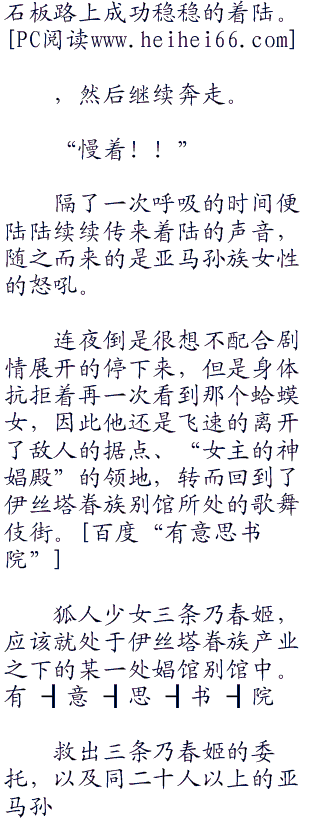 石板路上成功稳稳的着陆。
[PC阅读www.heihei66.com]
，然后继续奔走。
“慢着！！”
隔了一次呼吸的时间便
陆陆续续传来着陆的声音，
随之而来的是亚马孙族女性
的怒吼。
连夜倒是很想不配合剧
情展开的停下来，但是身体
抗拒着再一次看到那个蛤蟆
女，因此他还是飞速的离开
了敌人的据点、“女主的神
娼殿”的领地，转而回到了
伊丝塔眷族别馆所处的歌舞
伎街。[百度“有意思书
院”]
狐人少女三条乃春姬，
应该就处于伊丝塔眷族产业
之下的某一处娼馆别馆中。
有┫意┫思┫书┫院
救出三条乃春姬的委
托，以及同二十人以上的亚
马孙